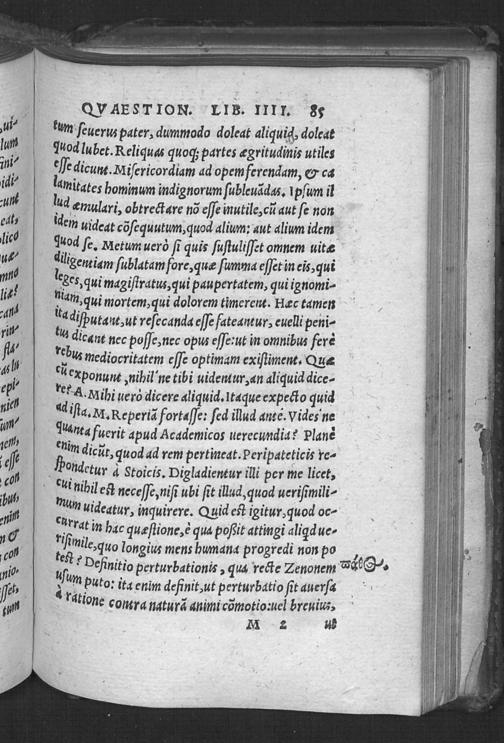 QVAESTION. LIB. IIII. 85
tum seuerus pater, dummodo doleat aliquid, doleat
quod lubet. Reliquas quoq; partes ægritudinis utiles
esse dicunt. Misericordiam ad opem ferendam, & ca
lamitates hominum indignorum subleuãdas. Ipsum il
lud æmulari, obtrectare nõ esse inutile, cũ aut se non
idem uideat cõsequutum, quod alium: aut alium idem
quod se. Metum uerò si quis sustulisset omnem uitæ
diligentiam sublatam fore, quæ summa esset in eis, qui
leges, qui magistratus, qui paupertatem, qui ignomi-
niam, qui mortem, qui dolorem timerent. Hæc tamen
ita disputant, ut resecanda esse fateantur, euelli peni-
tus dicant nec posse, nec opus esse: ut in omnibus ferè
rebus mediocritatem esse optimam existiment. Quæ
cũ exponunt, nihil'ne tibi uidentur, an aliquid dice-
re? A. Mihi uerò dicere aliquid. Itaque expecto quid
ad ista. M. Reperiã fortasse: sed illud antè. Vides'ne
quanta fuerit apud Academicos uerecundia? Planè
enim dicũt, quod ad rem pertineat. Peripateticis re-
spondetur à Stoicis. Digladientur illi per me licet,
cui nihil est necesse, nisi ubi sit illud, quod uerisimili-
mum uideatur, inquirere. Quid est igitur, quod oc-
currat in hac quæstione, è qua poßit attingi aliqd ue-
risimile, quo longius mens humana progredi non po
test? Definitio perturbationis, qua rectè Zenonem
usum puto: ita enim definit, ut perturbatio sit auersa
à ratione contra naturã animi cõmotio: uel breuius,
πάθος.
M 2 ut